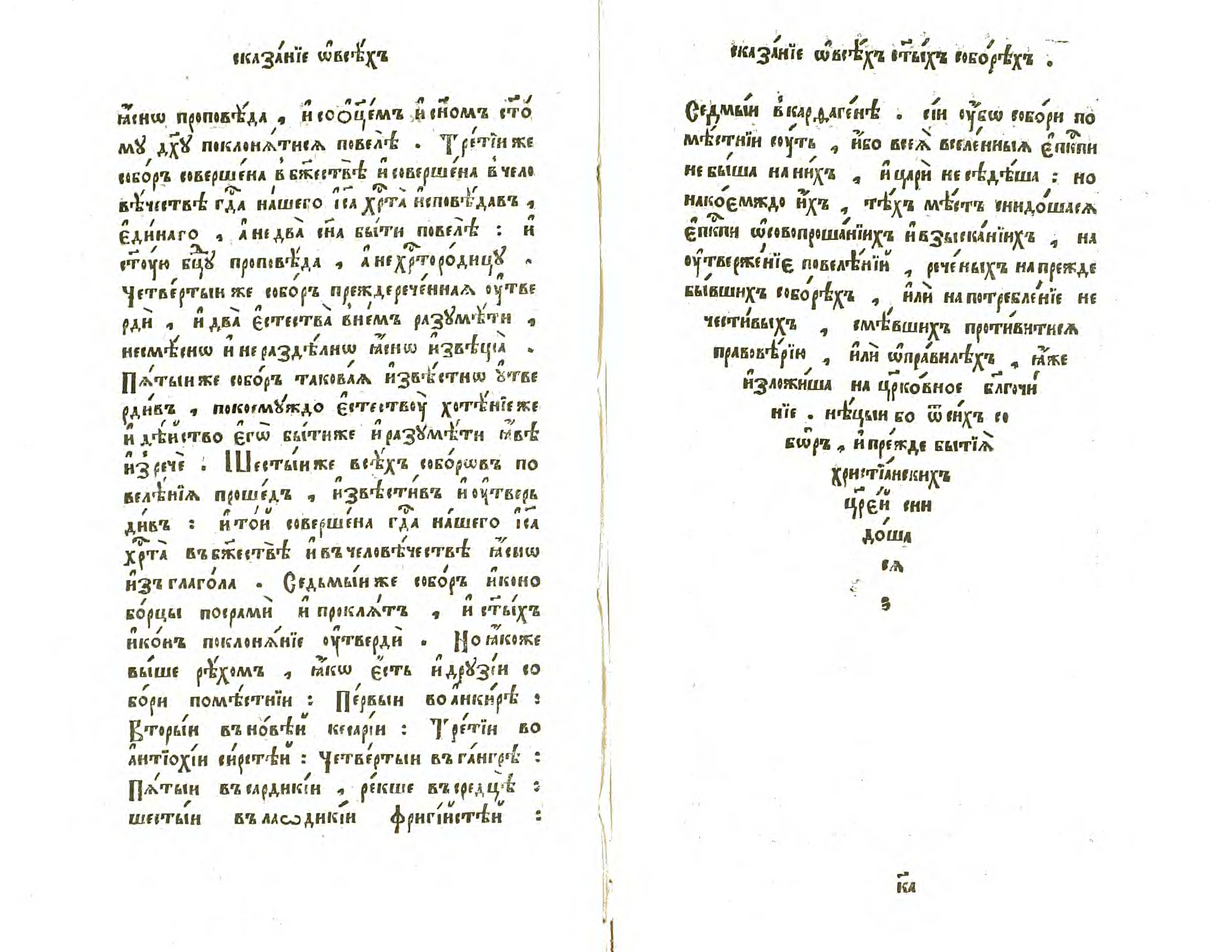 сказа́нїе ѡ҆всѣ́хъ
ꙗ҆́снѡ проповѣ́да , и҆ соѻ҆ц҃е́мъ и҆ сн҃омъ ст҃о́
мꙋ дх҃ꙋ поклонѧ́тисѧ повелѣ̀ . Тре́тїи же
собо́ръ соверше́на в̾бж҃ествѣ̀ и҆ соверше́на в̾чело
вѣ́чествѣ гд҇а на́шего і҆са хр҇та̀ и҆сповѣ́давъ ,
є҆ди́наго , а҆ не два̀ сн҃а бы́ти повелѣ̀ : и҆
ст҃ꙋ́ю бц҃ꙋ проповѣ́да , а҆ не хр҇торо́дицꙋ .
Четве́ртыи же собо́ръ преждерече́ннаѧ оу҆тве
рдѝ , и҆ два̀ є҆стества̀ в̾не́мъ разꙋмѣ́ти ,
несмѣ́снѡ и҆ нераздѣ́лнѡ ꙗ҆́снѡ и҆звѣща̀ .
Пѧ́тыи же собо́ръ такова́ѧ и҆звѣ́стнѡ ᲂу҆тве
рди́въ , покоемꙋ́ждо є҆стествоу̀ хотѣ́нїе же
и҆ дѣ́йство є҆гѡ̀ бы́ти же и҆ разꙋмѣ́ти ꙗ҆́вѣ
и҆зречѐ . Шесты́и же всѣ́хъ собо́рѡвъ по
велѣ́нїѧ проше́дъ , и҆звѣсти́въ и҆ оу҆тверь
ди́въ : и҆ то́й соверше́на гд҇а на́шего і҆са
хр҇та̀ въ бж҃ествѣ̀ и҆ въ человѣ́чествѣ ꙗ҆́снѡ
и҆зъглаго́ла . Седьмы́и же собо́ръ и҆коно
бо́рцы посрамѝ и҆ проклѧ́тъ , и҆ ст҃ы́хъ
и҆ко́нъ поклонѧ́нїе оу҆твердѝ . Но ꙗ҆́коже
вы́ше рѣ́хомъ , ꙗ҆́кѡ є҆́сть и҆ дрꙋзі́и со
бо́ри помѣ́стнїи : Пе́рвыи во а҆нки́рѣ :
Вторы́и въ но́вѣй кесарі́и : Тре́тїи во
а҆нтїохі́и си́рстѣй : Четве́ртыи въ га́нгрѣ :
Пѧ́тыи въ сардикі́и , ре́кше въ средцѣ̀ :
шесты́и въ лаѡдикі́и фригі́йстѣй :
сказа́нїе ѡ҆всѣ́хъ ст҃ы́хъ собо́рѣхъ .
Седмы́и в̾карѳаге́нѣ . сі́и оу҆́бѡ собо́ри по
мѣ́стнїи соу́ть , и҆́бо всеѧ̀ вселе́нныѧ є҆пⷭ҇кпи
не бы́ша на ни́хъ , и҆ цари̂ не сѣдѣ́ша : но
накое́мждо и҆́хъ , тѣ́хъ мѣ́стъ снидо́шасѧ
є҆пⷭ҇кпи ѡ҆ совопроша́нїихъ и҆ взыска́нїихъ , на
оу҆твержє́нїє повелѣ́нїй , рече́ныхъ на прежде
бы́вшихъ собо́рѣхъ , и҆лѝ на потребле́нїе не
чести́выхъ , смѣ́вшихъ проти́витисѧ
правовѣ́рїю , и҆лѝ ѡ҆пра́вилѣхъ , ꙗ҆́же
и҆зложи́ша на цр҃ко́вное бл҃гочи́
нїе . нѣ́цыи бо ѿ си́хъ со
бѡ́ръ , и҆ пре́жде бытїѧ̀
христїа́нскихъ
цр҃е́й сни
до́ша
сѧ
з
к҃а